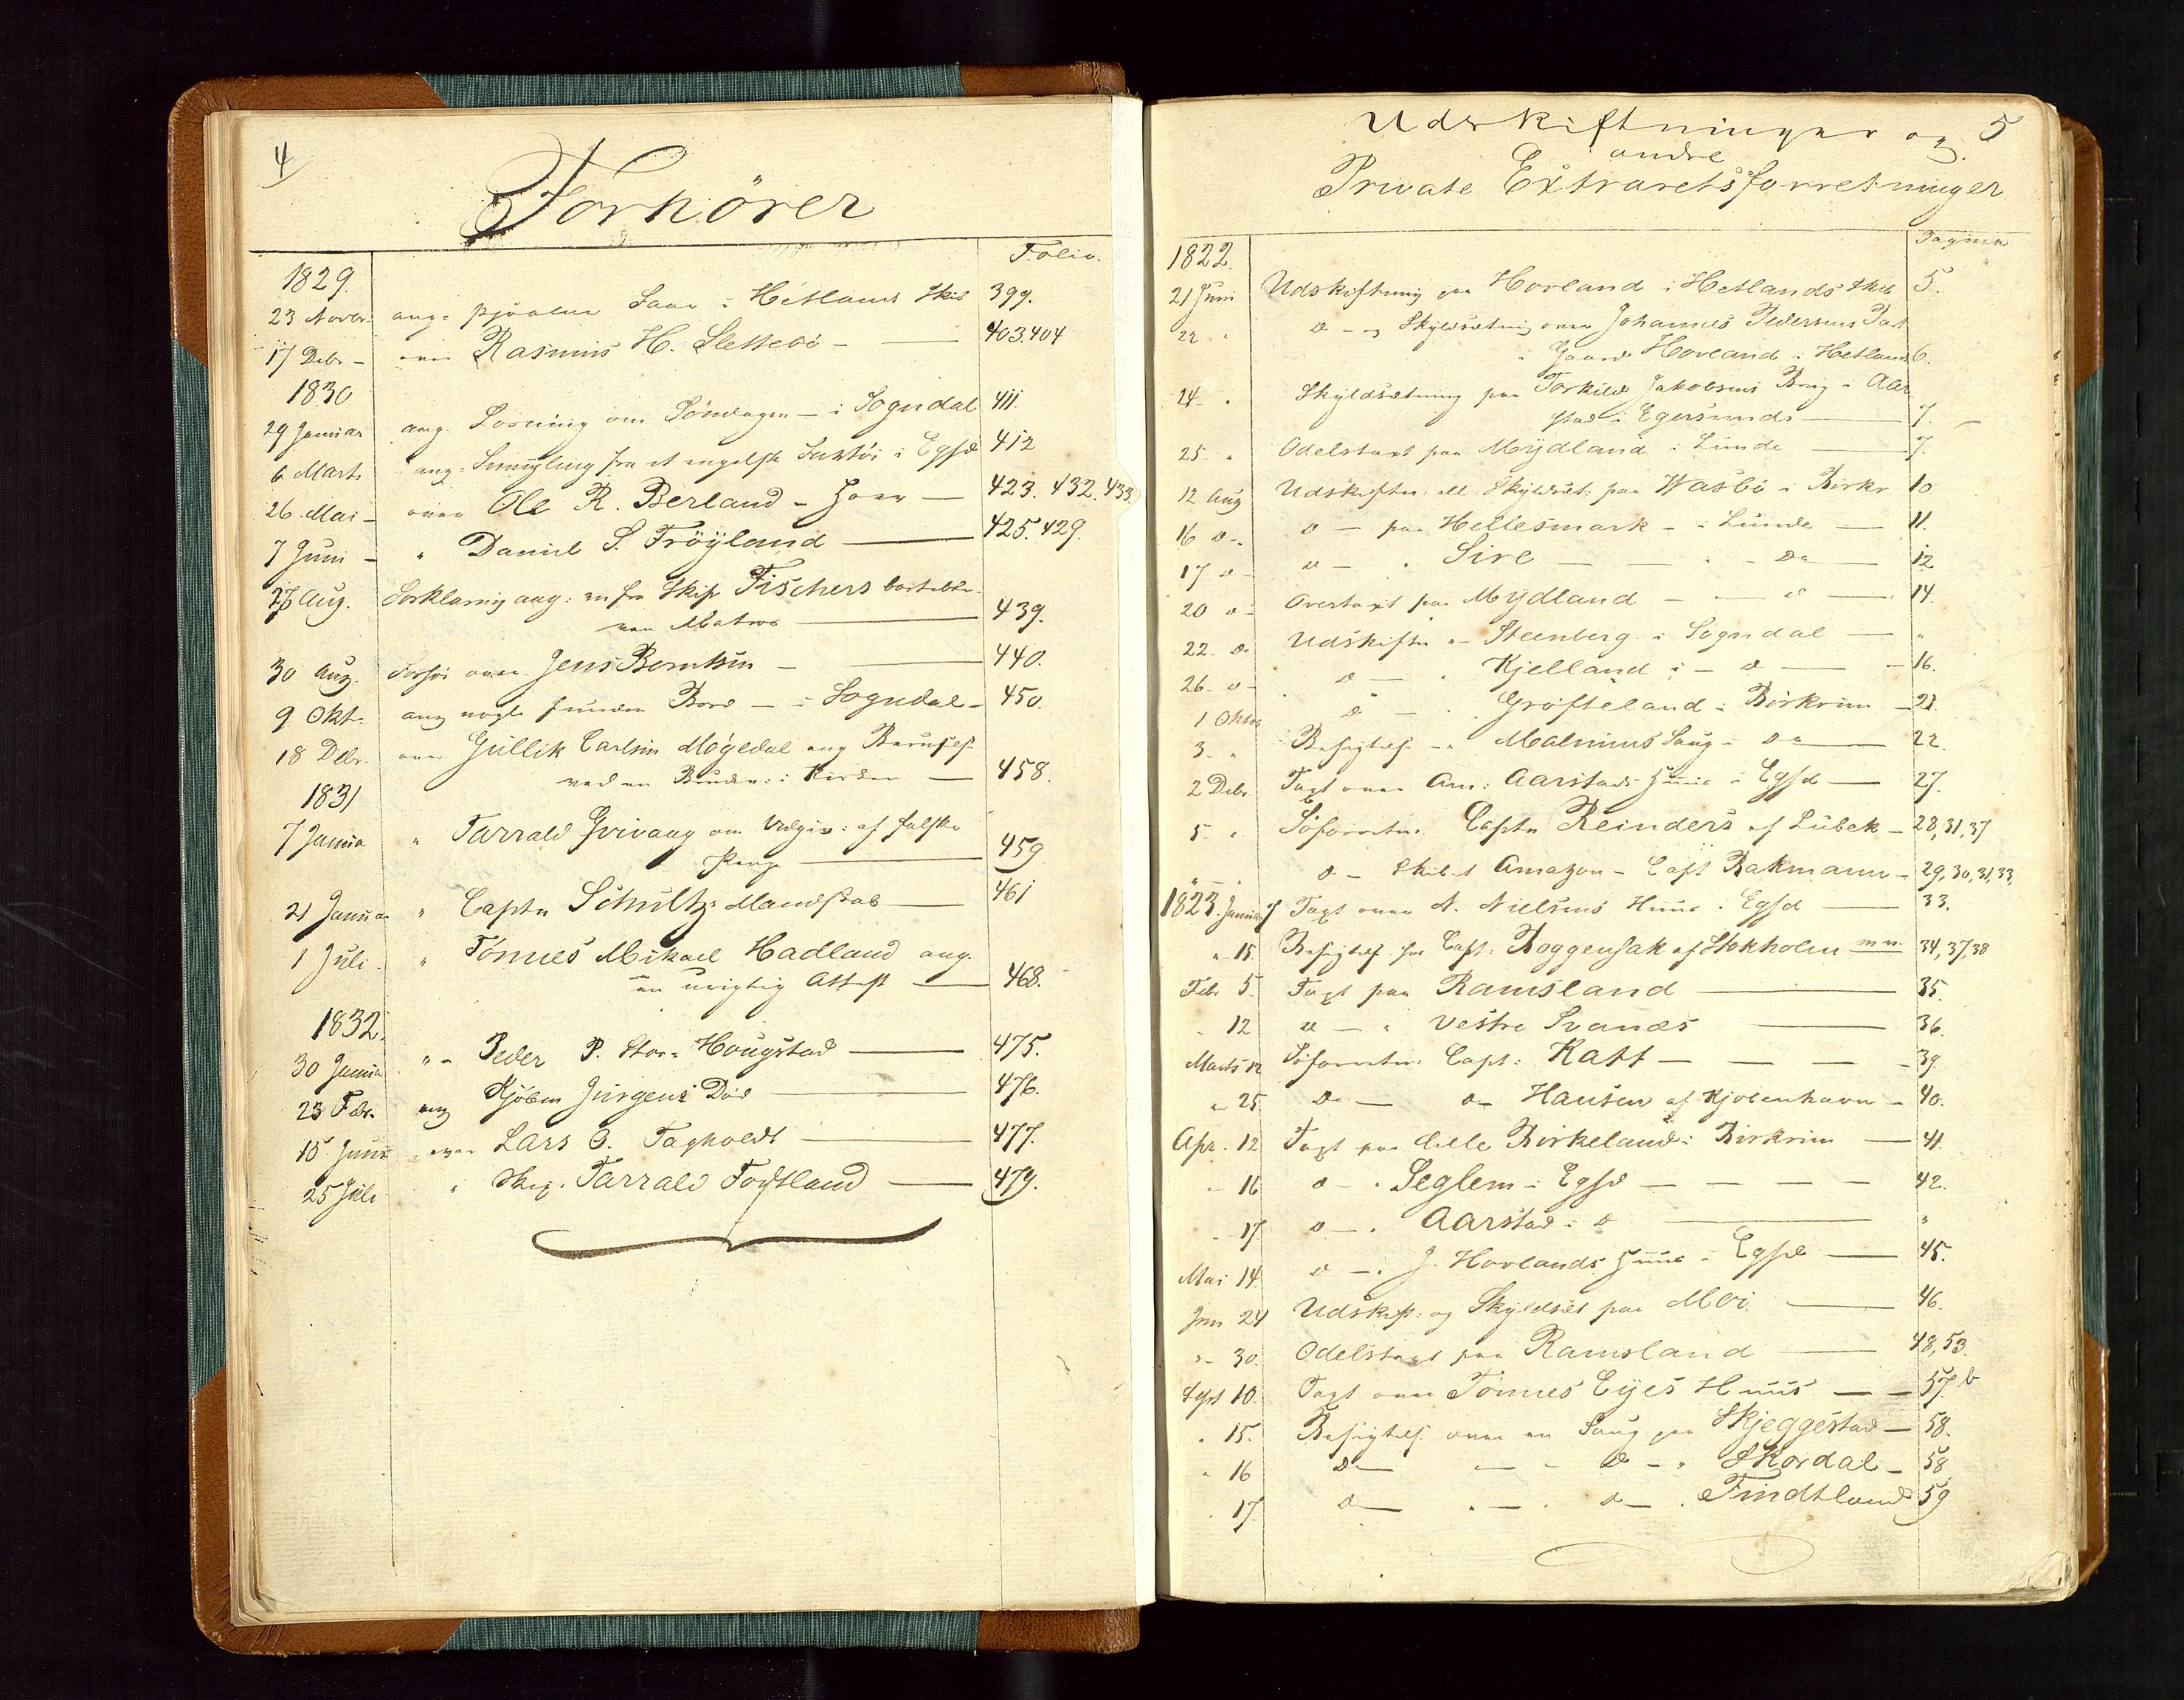 4
Forhörer
Folio.
1829.
23 Novbr. ang: stjaalne Faar i Hetlands Skib 399.
17 Debr - over Rasmus H. Slettebö - 403.404
1830
29 Januar ang. Losning om Söndagen - i Sogndal 411.
6 Marts ang: Smugling fra et engelsk Fartöi i Egsd 412
26. Mai - over Ole R. Berland - Hoer - 423. 432. 433.
7 Juni - " Daniel S. Fröÿland 425. 429.
27 Aug. Forklaring ang: en fra Skip Fischers borteble-
ven Matros 439.
30 Aug. Forhör over Jens Berntsen - 440.
9 Okt. ang nogle fundne Bord - i Sogndal - 450.
18 Debr. over Gullik Carlsen Mögedal ang Beruselse
ved en Brudev: i Kirken - 458.
1831
7 Janua " Tarrald Gvivaag om Udgiv: af falske
Penge 459
21 Janua " Captn Schultz's Mandskab 461
1 Juli " Tönnes Mikael Hadland ang.
en urigtig Attest 468.
1832.
30 Janua " - Peder P. Stor-Hougstad 475.
23 Febr. ang Kjöbm Jürgens Död 476.
15 Juni over Lars O. Tagholdt 477.
25 Juli " Skip. Tarrald Fodtland 479.
Udskiftninger og 5
andre
Private Extraretsforretninger
Pagina
1822.
21 Juni Udskiftning paa Hovland i Hetlands Skib 5.
22 " D - og Skyldsætning over Johannes Pedersens Part
i Gaard Hovland i Hetland 6.
24 " Skyldsætning paa Torkild Jakobsens Brug i Aar
stad i Egersund 7.
25 " Odelstaxt paa Mÿdland i Lunde 7.
12 Aug Udskiftn: ell. Skyldsæt: paa Wasbö i Birkr 10
16 D- D - paa Hellesmark - i Lunde 11.
17 D- D - " Sire - Do 12
20 D- Overtaxt paa Mÿdland - D 14.
22 D- Udskiftn " Steenberg i Sogndal "
26 D- D - " Kjelland i - D - 16.
1 Oktob D - " Gröfteland i Birkrim - 21.
3 " Besigtels - " Malmiens Saug i Do 22.
2 Debr. Taxt over Am: Aarstads Huus i Egsd 27.
5 " Söforretn. Captn Reinders af Lübek - 28, 31, 37
" " D - Skibet Amazon - Capt Bakmann - 29, 30, 31, 33,
1823. Janua 7 Taxt over N. Nielsens Huus i Egsd 33.
" 15 Besigtels for Capt: Roggensak af Stokholm m.v. 34, 37, 38
Febr 5. Taxt paa Ramsland 35.
" 12 D - " Vestre Svanæs 36.
Marts 12 Söforretn: Capt: Kaff 39
" 25 Do D- Hansen af Kjöbenhavn - 40.
Apr. 12 Taxt paa lille Birkeland i Birkrim 41.
" 16 D - " Seglem i Egsd 42.
" 17 D - " Aarstad i D "
Mai 14 D - " J. Hovlands Huus i Egsd 45.
Juni 24 Udskift: og Skyldsæt paa Moi 46.
" 30. Odelstaxt paa Ramsland 48, 53.
Sept 10. Taxt over Tönnes Eÿes Huus 57. b
" 15. Besigtels over en Saug paa Skjeggestad 58.
" 16 D - D - " Skordal - 58
" 17 D " - " D - " Findtland 59